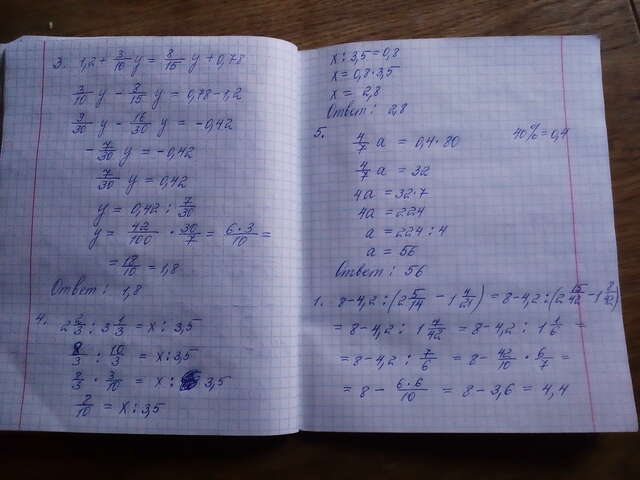 3. 1,2 + 3/10 y = 8/15 y + 0,78
3/10 y - 8/15 y = 0,78 - 1,2
9/30 y - 16/30 y = -0,42
- 7/30 y = -0,42
7/30 y = 0,42
y = 0,42 : 7/30
y = 42/100 · 30/7 = 6·3/10 =
= 18/10 = 1,8
Ответ: 1,8
4. 2 2/3 : 3 1/3 = x : 3,5
8/3 : 10/3 = x : 3,5
8/3 · 3/10 = x : 3,5
8/10 = x : 3,5
x : 3,5 = 0,8
x = 0,8 · 3,5
x = 2,8
Ответ: 2,8
5.
4/7 a = 0,4 · 80 40% = 0,4
4/7 a = 32
4a = 32 · 7
4a = 224
a = 224 : 4
a = 56
Ответ: 56
1. 8 - 4,2 : (2 5/14 - 1 4/21) = 8 - 4,2 : (2 15/42 - 1 8/42)
= 8 - 4,2 : 1 7/42 = 8 - 4,2 : 1 1/6 =
= 8 - 4,2 : 7/6 = 8 - 42/10 · 6/7 =
= 8 - 6·6/10 = 8 - 3,6 = 4,4